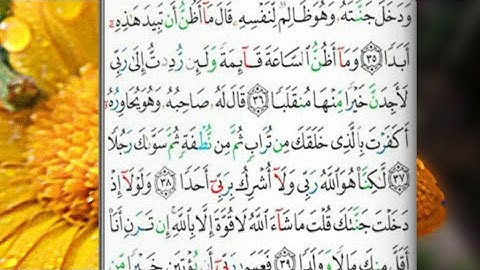 وَدَخَلَ جَنَّتَهُ وَهُوَ ظَالِمٌ لِّنَفْسِهِ قَالَ مَا أَظُنُّ أَن تَبِيدَ هَٰذِهِ
أَبَدًا ٣٥ وَمَا أَظُنُّ السَّاعَةَ قَائِمَةً وَلَئِن رُّدِدتُّ إِلَىٰ رَبِّي
لَأَجِدَنَّ خَيْرًا مِّنْهَا مُنقَلَبًا ٣٦ قَالَ لَهُ صَاحِبُهُ وَهُوَ يُحَاوِرُهُ
أَكَفَرْتَ بِالَّذِي خَلَقَكَ مِن تُرَابٍ ثُمَّ مِن نُّطْفَةٍ ثُمَّ سَوَّىٰكَ رَجُلًا
٣٧ لَّٰكِنَّا هُوَ اللَّهُ رَبِّي وَلَا أُشْرِكُ بِرَبِّي أَحَدًا ٣٨ وَلَوْلَا إِذْ
دَخَلْتَ جَنَّتَكَ قُلْتَ مَا شَاءَ اللَّهُ لَا قُوَّةَ إِلَّا بِاللَّهِ إِن تَرَنِ أَنَا
أَقَلَّ مِنكَ مَالًا وَوَلَدًا ٣٩ فَعَسَىٰ رَبِّي أَن يُؤْتِيَنِ خَيْرًا مِّن